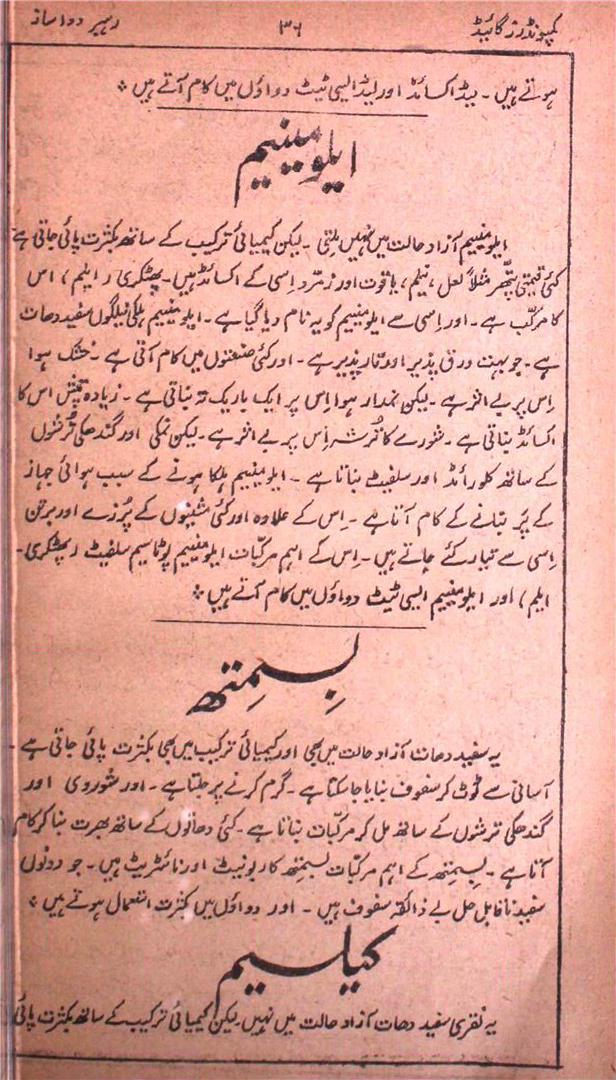 کمپونڈرز گائیڈ ۳۶ رہبر دواساز
ہوتے ہیں ۔ لیڈ اکسائڈ اور لیڈ ایسی ٹیٹ دواؤں میں کام آتے ہیں ؞
ایلومینیم
ایلومینیم آزاد حالت میں نہیں ملتی ۔ لیکن کیمیائی ترکیب کے ساتھ بکثرت پائی جاتی ہے
کئی قیمتی پتھر مثلاً لعل ، نیلم ، یاقوت اور زمرّد اِسی کے اکسائڈ ہیں ۔ پھٹکری ( ایلم ) اس
کا مرکّب ہے ۔ اور اِسی سے ایلومنیم کو یہ نام دیا گیا ہے ۔ ایلومنیم ہلکی نیلگوں سفید دھات
ہے ۔ جو بہت ورق پذیر اور تار پذیر ہے ۔ اور کئی صنعتوں میں کام آتی ہے ۔ خشک ہوا
اِس پر بے اثر ہے ۔ لیکن نمدار ہوا اِس پر ایک باریک تہ بناتی ہے ۔ زیادہ تپش اس کا
اکسائڈ بناتی ہے ۔ شورے کا تُرشہ اِس پر بے اثر ہے ۔ لیکن نمکی اور گندھکی تُرشوں
کے ساتھ کلورائڈ اور سلفیٹ بناتا ہے ۔ ایلومنیم ہلکا ہونے کے سبب ہوائی جہاز
کے پَر بنانے کے کام آتا ہے ۔ اِس کے علاوہ اور کئی مشینوں کے پُرزے اور برتن
اِسی سے تیار کئے جاتے ہیں ۔ اِس کے اہم مرکّبات ایلومنیم پوٹاسیم سلفیٹ ( پھٹکری ۔
ایلم ) اور ایلومنیم ایسی ٹیٹ دواؤں میں کام آتے ہیں ؞
بِسمِتھ
یہ سفید دھات آزاد حالت میں بھی اور کیمیائی ترکیب میں بھی بکثرت پائی جاتی ہے
آسانی سے ٹوٹ کر سفوف بنایا جا سکتا ہے ۔ گرم کرنے پر جلتا ہے ۔ اور شوروی اور
گندھکی ترشوں کے ساتھ مل کر مرکّبات بناتا ہے ۔ کئی دھاتوں کے ساتھ بھرت بنا کر کام
آتا ہے ۔ بِسمِتھ کے اہم مرکّبات بسمتھ کاربونیٹ اور نائٹریٹ ہیں ۔ جو دونوں
سفید ناقابل حل بے ذائقہ سفوف ہیں ۔ اور دواؤں میں کثرت استعمال ہوتے ہیں ؞
کیلسیم
یہ نقری سفید دھات آزاد حالت میں نہیں لیکن کیمیائی ترکیب کے ساتھ بکثرت پائی